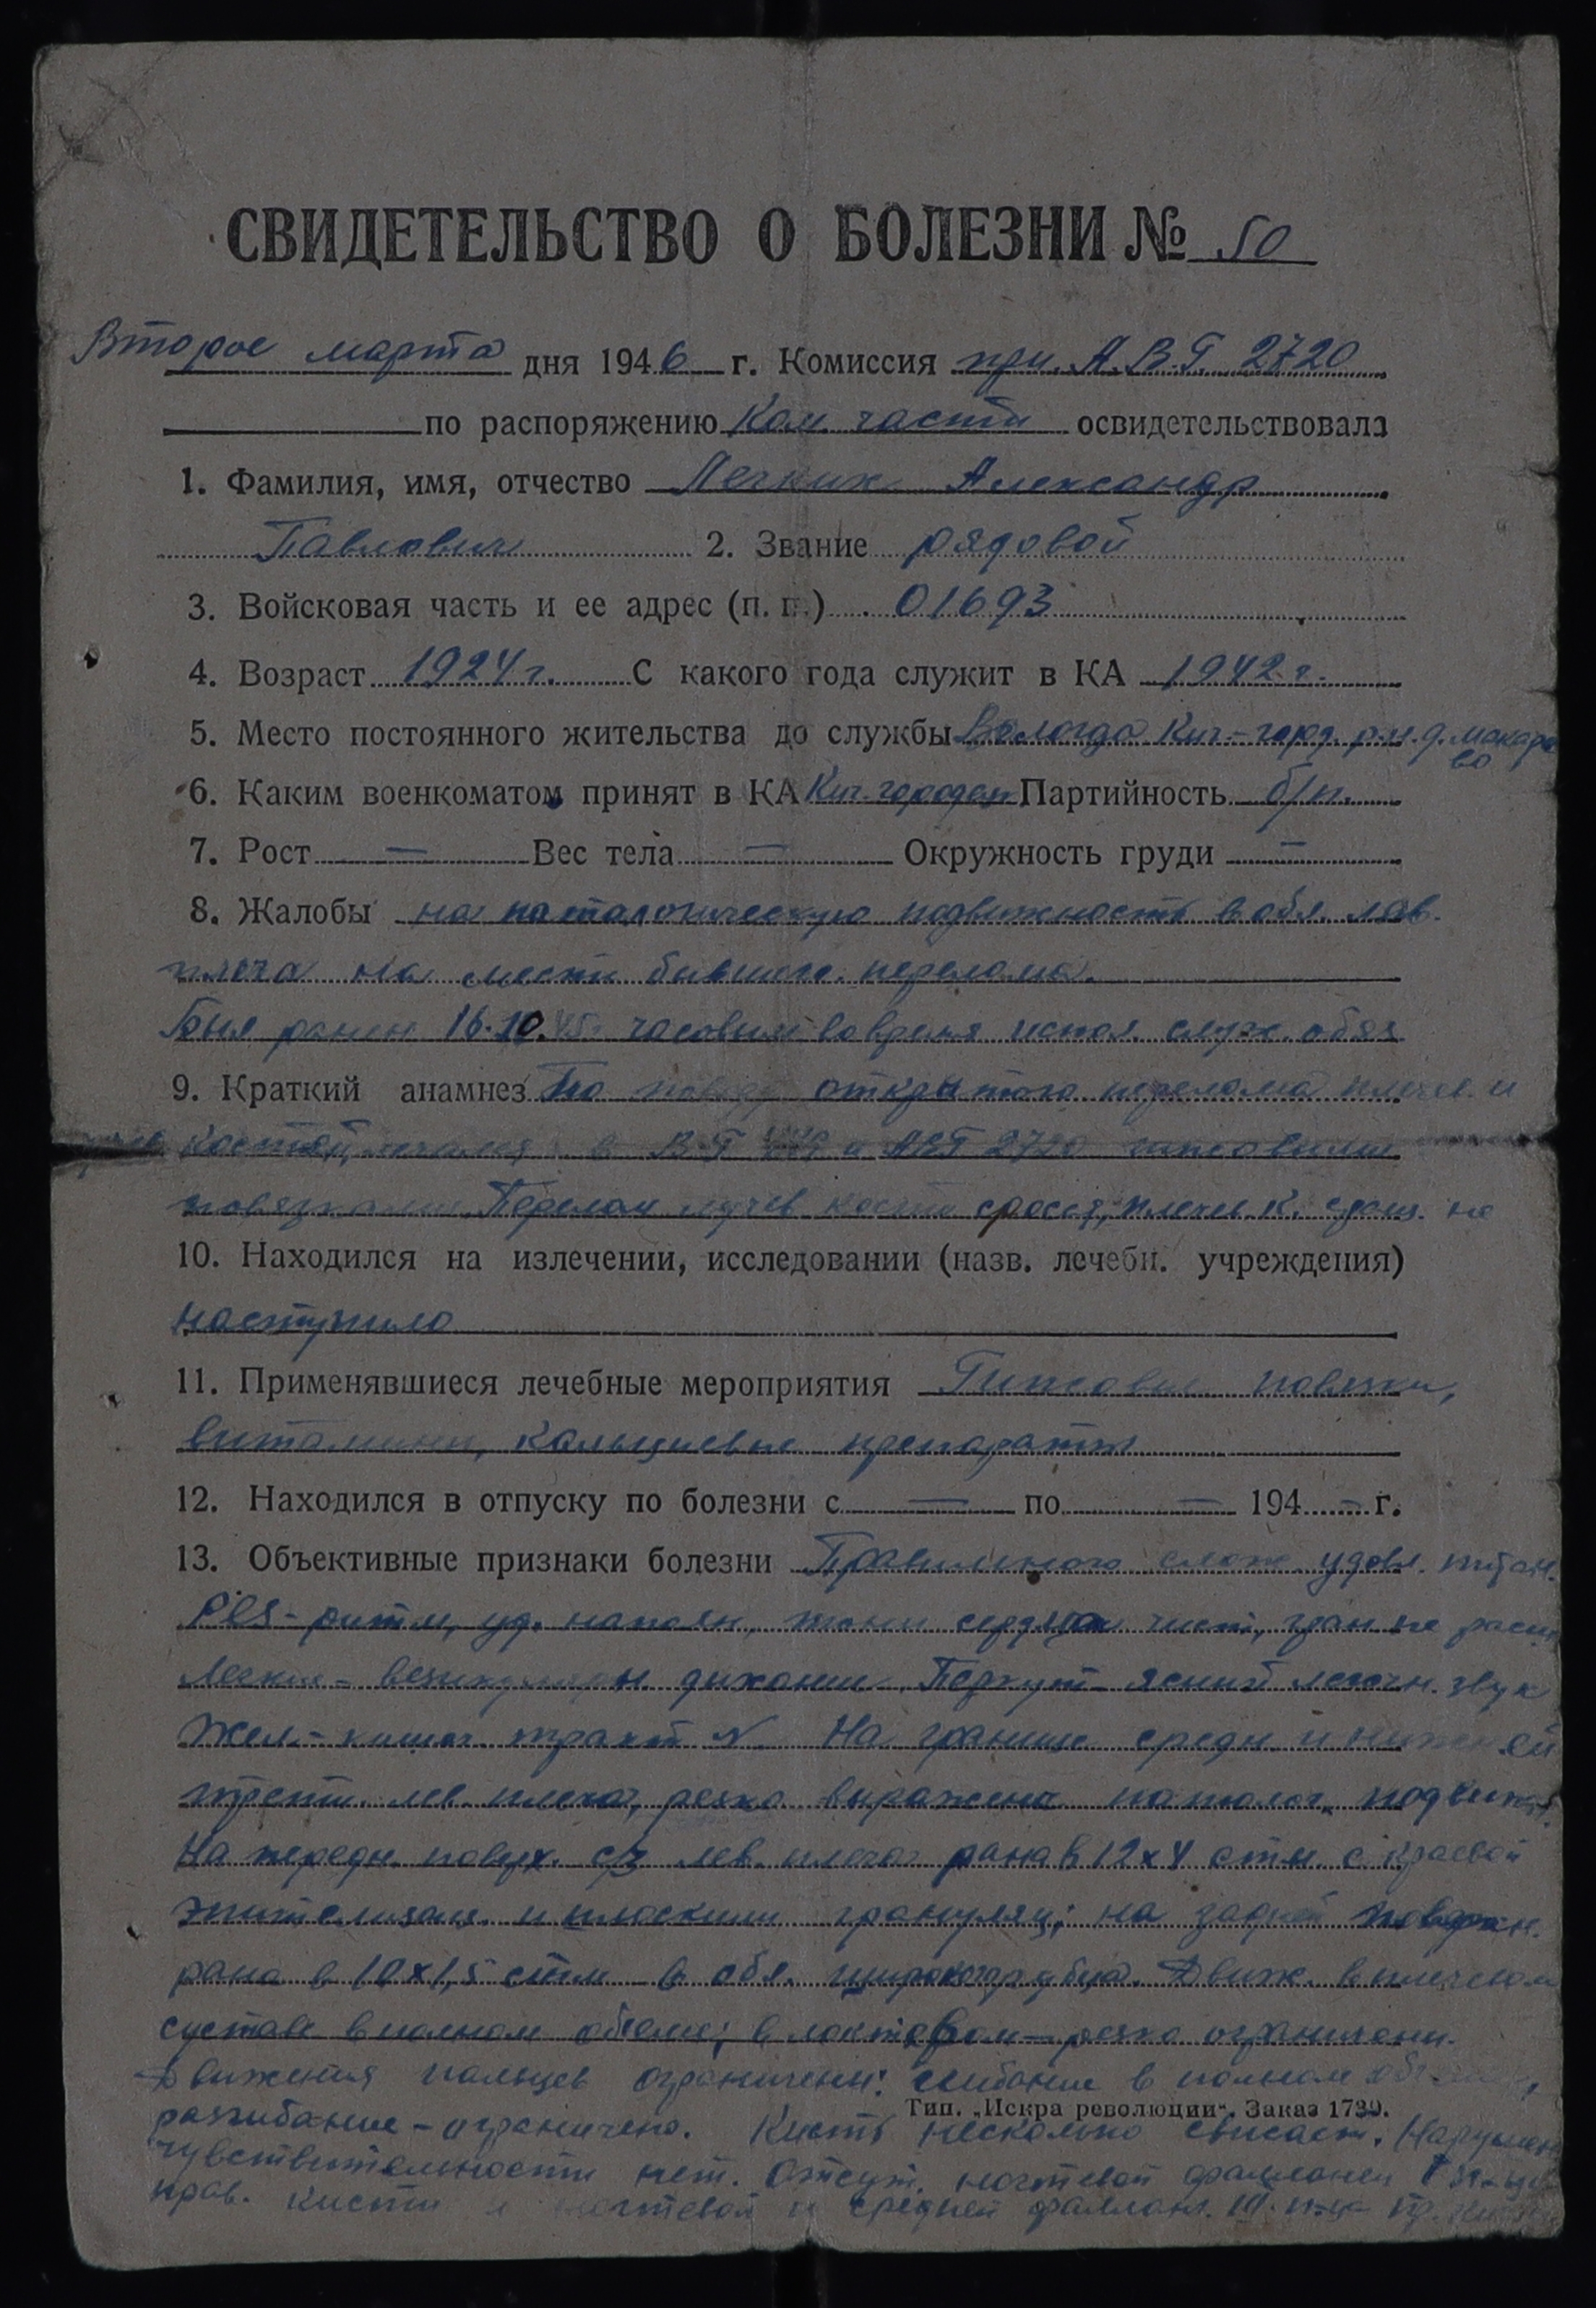 СВИДЕТЕЛЬСТВО О БОЛЕЗНИ № 50
Второе марта дня 1946 г. Комиссия при А.В.Г. 2720
по распоряжению Ком. части освидетельствовала
1. Фамилия, имя, отчество Легких Александр
Павлович 2. Звание рядовой
3. Войсковая часть и ее адрес (п. п.) 01693
4. Возраст 1924 г. С какого года служит в КА 1942 г.
5. Место постоянного жительства до службы Вологда Кич-город. р-н. д. Макаро
во
6. Каким военкоматом принят в КА Кич-городец Партийность б/п.
7. Рост — Вес тела — Окружность груди —
8. Жалобы на патологическую подвижность в обл. лев.
плеча на месте бывшего перелома.
Был ранен 16.10.45 часовым во время испол. служ. обяз
9. Краткий анамнез По поводу открытого перелома плечев. и
костей лечился в ВГ и АВГ 2720 гипсовыми
повязками. Перелом лучев кости сросся, плечев. к. сращ. не
10. Находился на излечении, исследовании (назв. лечебн. учреждения)
наступило
11. Применявшиеся лечебные мероприятия Гипсовые повязки,
витамины, кальциевые препараты
12. Находился в отпуску по болезни с — по — 194 — г.
13. Объективные признаки болезни Правильного слож. удовл. питан.
PLS - ритм, уд. наполн, тоны сердца чист, гран не расш
Легкие - везикулярн. дыхание Перкут - ясный легочн. звук
Жел-кишеч. тракт N. На границе средн. и нижней
трети лев. плеча, резко выражена патолог. подвижн.
На передн. поверх. с/з лев. плеча рана в 12х4 стм. с краевой
эпителизац. и плоскими грануляц; на задней поверхн.
рана в 10х1,5 стм в обл. рубца. Движ. в плечевом
суставе в полном объеме; в локтевом - резко ограничены.
Движения пальцев ограничены: сгибание в полном объеме,
Тип. „Искра революции". Заказ 1739.
разгибание - ограничено. Кисть несколько свисает. Нарушен
чувствительности нет. Отсут. ногтевой фаланги
прав. кисти и ногтевой и средней фаланг. III п-ца пр.